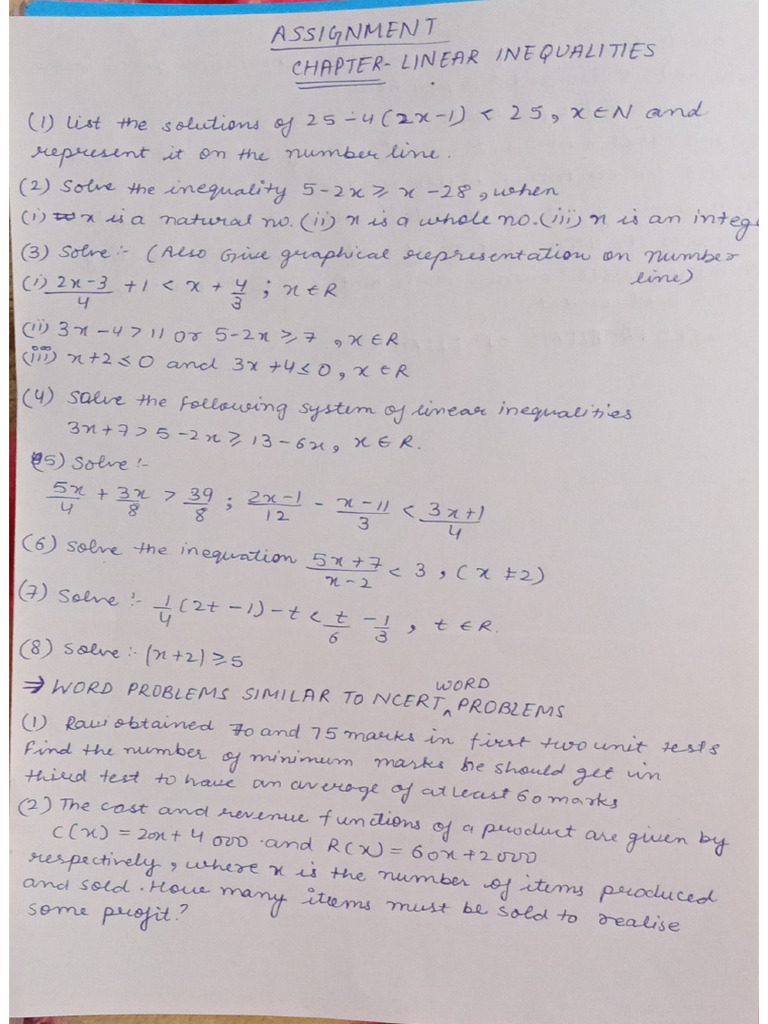 ASSIGNMENT
CHAPTER- LINEAR INEQUALITIES
(1) List the solutions of 25-4(2x-1) < 25, x ∈ N and
represent it on the number line.
(2) Solve the inequality 5-2x ≥ x-28, when
(i) x is a natural no. (ii) x is a whole no. (iii) x is an integ
(3) Solve:- (Also Give graphical representation on number
line)
(i) (2x-3)/4 + 1 < x + 4/3 ; x ∈ R
(ii) 3x-4 > 11 or 5-2x ≥ 7, x ∈ R
(iii) x+2 ≤ 0 and 3x+4 ≤ 0, x ∈ R
(4) Solve the following system of linear inequalities
3x+7 > 5-2x ≥ 13-6x, x ∈ R.
(5) Solve:-
5x/4 + 3x/8 > 39/8 ; (2x-1)/12 - (x-11)/3 < (3x+1)/4
(6) Solve the inequation (5x+7)/(x-2) < 3, (x ≠ 2)
(7) Solve:- 1/4 (2t-1) - t < t/6 - 1/3, t ∈ R.
(8) Solve:- |x+2| ≥ 5
⇒ WORD PROBLEMS SIMILAR TO NCERT WORD PROBLEMS
(1) Ravi obtained 70 and 75 marks in first two unit tests
Find the number of minimum marks he should get in
third test to have an average of atleast 60 marks
(2) The cost and revenue functions of a product are given by
C(x) = 20x + 4000 and R(x) = 60x + 2000
respectively, where x is the number of items produced
and sold. How many items must be sold to realise
some profit?